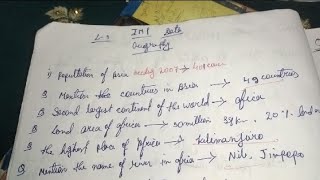 L-2 IMP Data
Geography
1) Population of Asia 2007 →
Q Mention the countries in Asia → 49 countries
Q Second largest continent of the world → africa
Q Land area of africa → 30 million 20%. land
Q the highest place of Africa → kilimanjaro
Q Mention the name of river in africa → Nile,